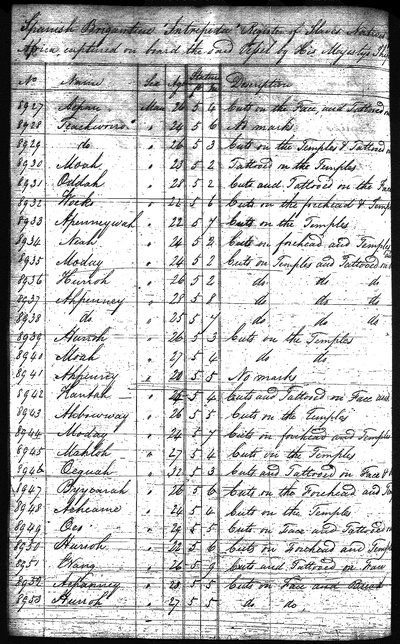 Spanish Brigantine "Intrepida" Register of Slaves Natives
Africa captured on board the said Vessel by His Majesty's Ship
No Name Sex Age Stature Description
Ft In
8927 Man 26 5 4 Cuts on the Face, and Tattooed
8928 " 24 5 6 No marks
8929 do " 26 5 3 Cuts on the Temples & Tattooed
8930 Moah " 23 5 2 Tattooed on the Temples
8931 Oddah " 28 5 2 Cuts and Tattooed on the Face
8932 " 22 5 6 Cuts on the forehead & Temples
8933 Apennywah " 22 5 7 Cuts on the Temples
8934 " 24 5 2 Cuts on forehead and Temples
8935 Moday " 24 5 2 Cuts on Temples and Tattooed
8936 Hurroh " 26 5 2 do do do
8937 Ahpenney " 28 5 8 do do do
8938 do " 25 5 7 do do do
8939 Hurroh " 26 5 3 Cuts on the Temples
8940 Moah " 27 5 4 do do
8941 Ahpenney " 20 5 5 No marks
8942 " 5 4 Cuts and Tattooed on Face and
8943 " 26 5 5 Cuts on the Temples
8944 Moday " 24 5 7 Cuts on forehead and Temples
8945 Mahloh " 27 5 4 Cuts on the Temples
8946 Ocquah " 32 5 3 Cuts and Tattooed on Face &
8947 " 26 5 6 Cuts on the Forehead and
8948 " 24 5 4 Cuts on the Temples
8949 " 29 5 5 Cuts on Face and Tattooed
8950 Hurroh " 22 5 6 Cuts on Forehead and Temples
8951 " 26 5 9 Cuts and Tattooed on Face
8952 Ahpanney " 28 5 5 Cuts on Face and
8953 Hurroh " 27 5 5 do do